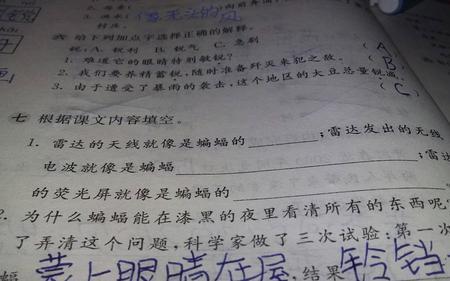 像无法的风
给下列加点字选择正确的解释。
锐:A. 锐利 B. 锐气 C. 急剧
1. 难道它的眼睛特别敏锐? (A)
2. 我们要养精蓄锐,随时准备歼灭来犯之敌。(B)
3. 由于遭受了暴雨的袭击,这个地区的大豆总量锐减。(C)
七 根据课文内容填空。
1. 雷达的天线就像是蝙蝠的 ;雷达发出的无线
电波就像是蝙蝠的 ;雷达
的荧光屏就像是蝙蝠的
2. 为什么蝙蝠能在漆黑的夜里看清所有的东西呢
了弄清这个问题,科学家做了三次试验:第一次
蝠 蒙上眼睛在屋,结果 铃铛